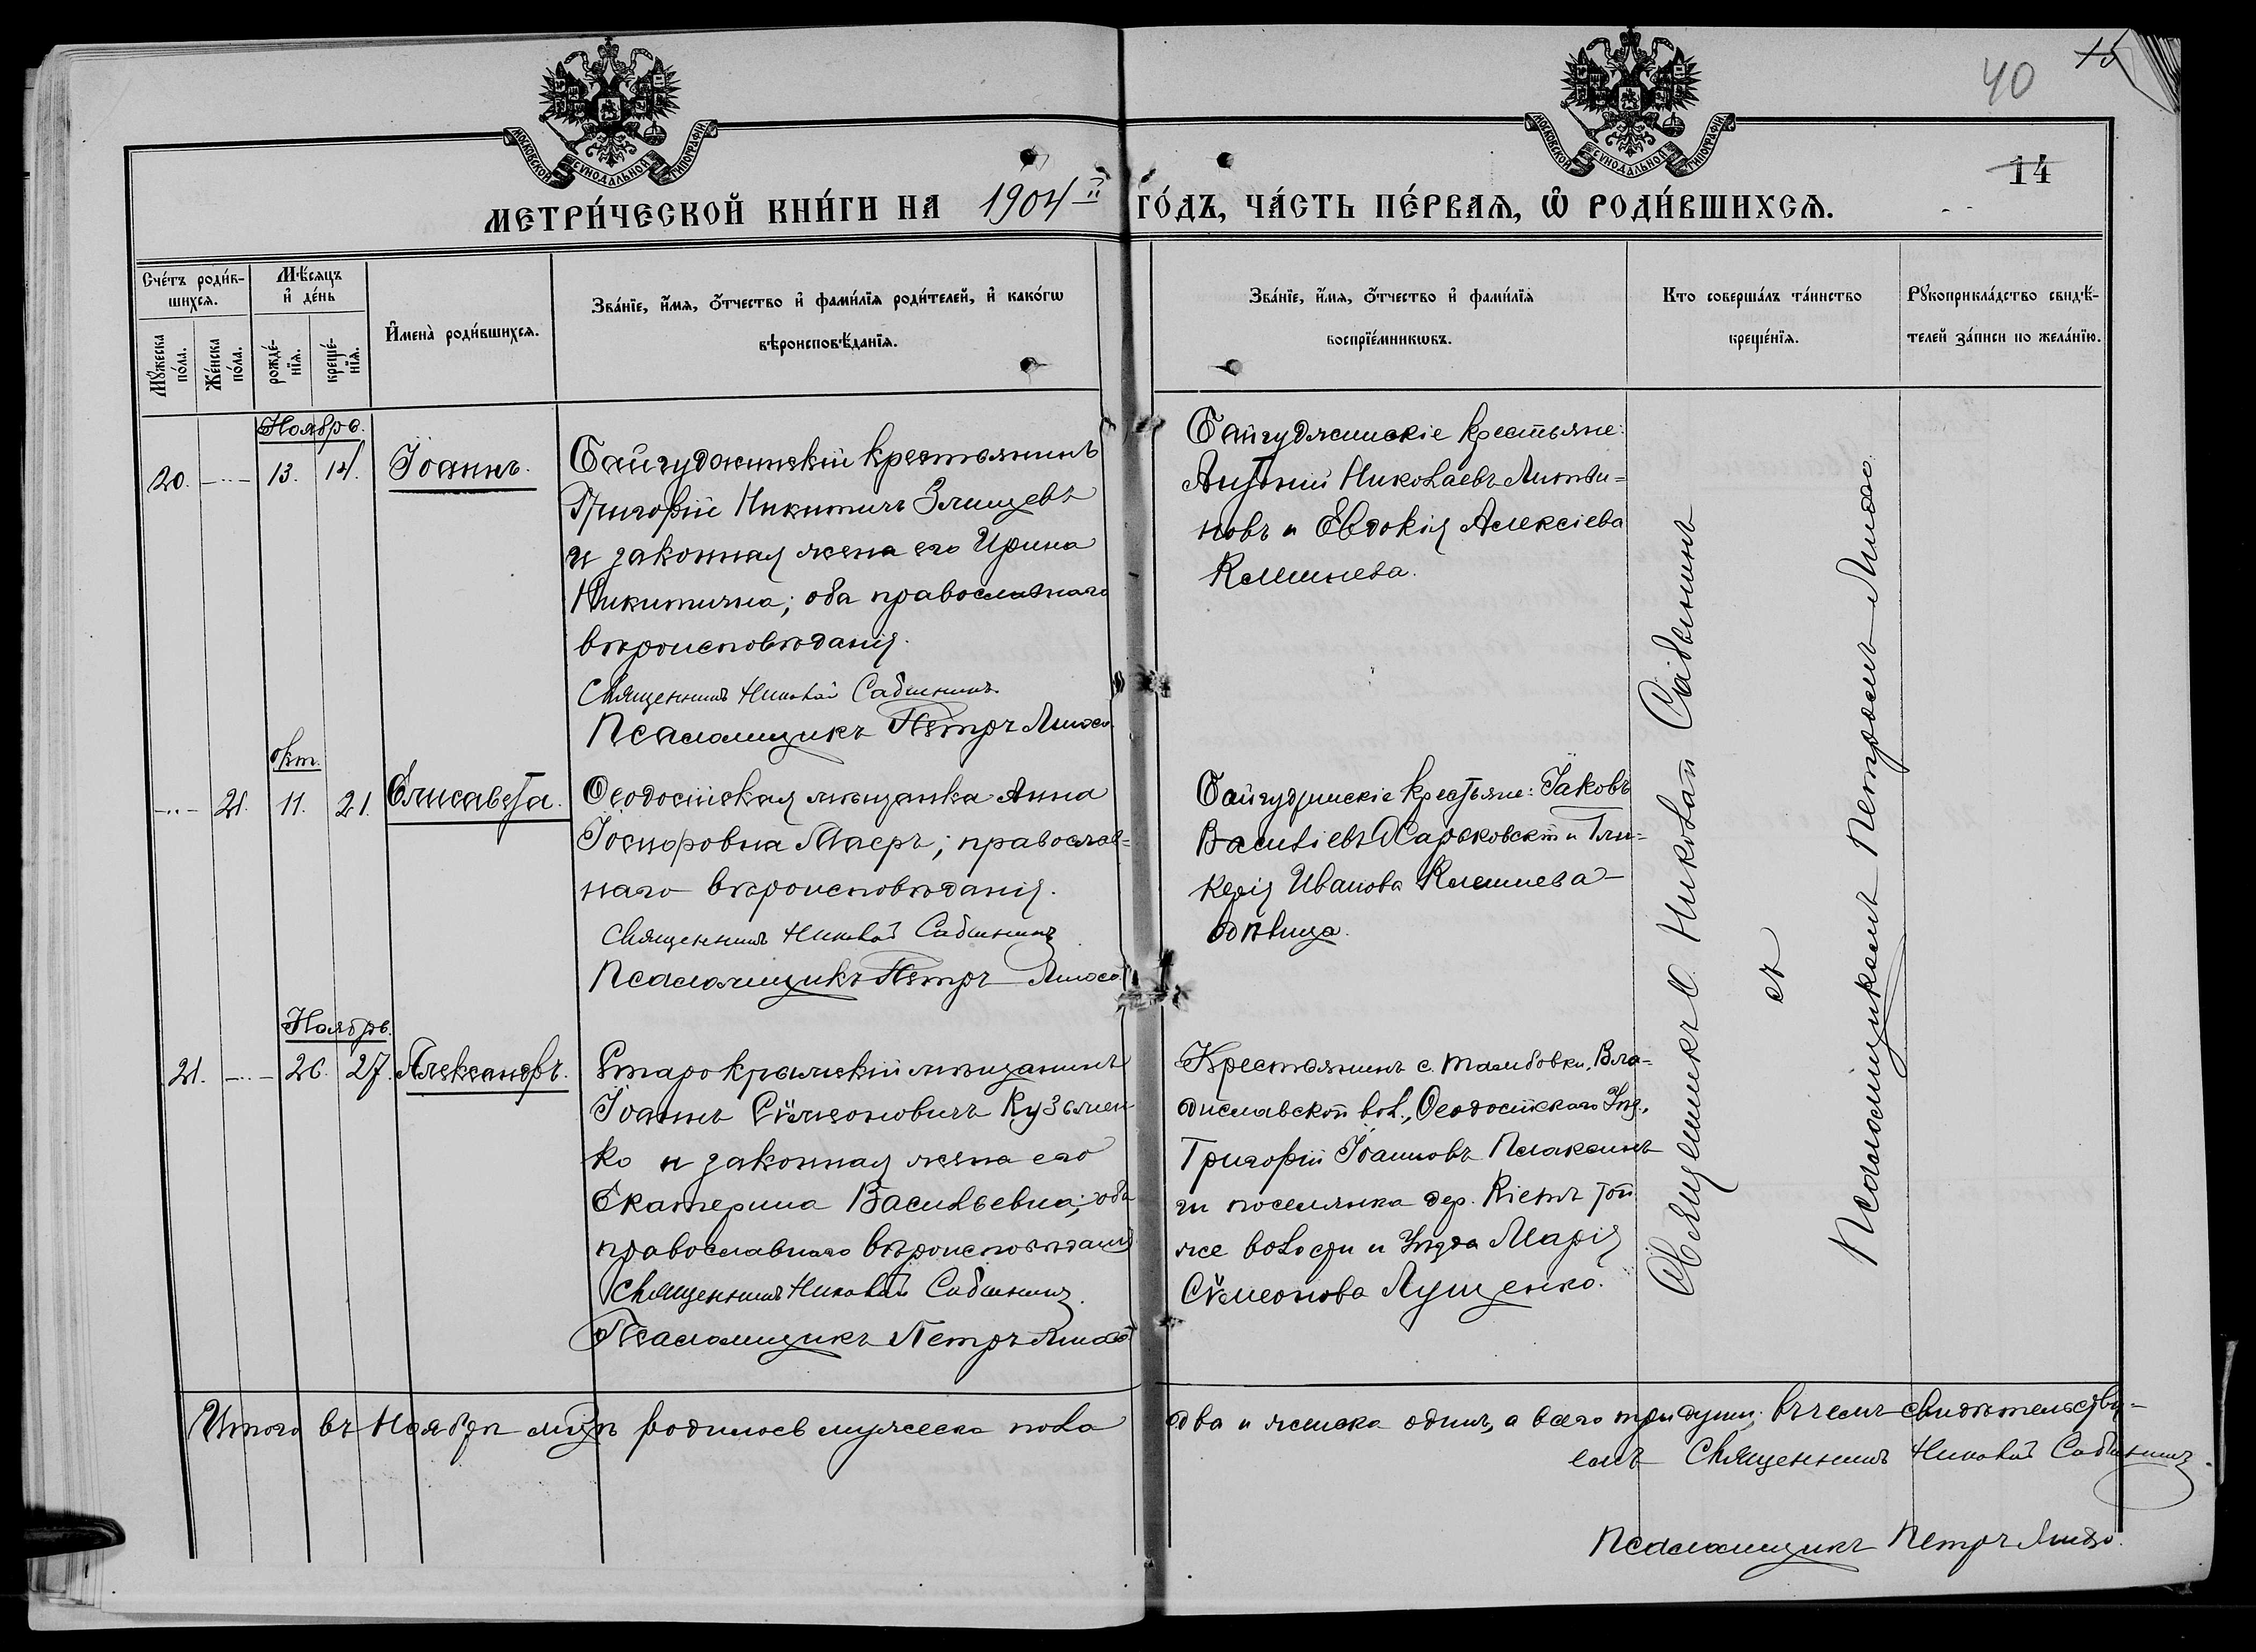 40
15
14
МОСКОВСКОЙ СУНОДАЛЬНОЙ ТИПОГРАФІИ
МОСКОВСКОЙ СУНОДАЛЬНОЙ ТИПОГРАФІИ
МЕТРИ́ЧЕСКОЙ КНИ́ГИ НА 1904й ГО́ДЪ, ЧА́СТЬ ПЕ́РВАѦ, Ѡ҆ РОДИ́ВШИХСѦ.
Сче́тъ роди́в-
шихсѧ.
Мꙋ́жеска
по́ла.
Же́нска
по́ла.
Мѣ́сѧцъ
и҆ де́нь
рожде́-
нїѧ.
креще́-
нїѧ.
И҆мена̀ роди́вшихсѧ.
Зва́нїе, и҆́мѧ, ѻ҆́тчество и҆ фами́лїѧ роди́телей, и҆ како́гѡ
вѣроисповѣ́данїѧ.
Зва́нїе, и҆́мѧ, ѻ҆́тчество и҆ фами́лїѧ
воспрїе́мникѡвъ.
Кто соверша́лъ та́инство
креще́нїѧ.
Рꙋкоприкла́дство свидѣ́-
телей за́писи по жела́нїю.
Ноябрь.
20. —..— 13. 14. Іоаннъ.
Байгуджинскій крестьянинъ
Григорій Никитичъ
и законная жена его Ирина
Никитична; оба православнаго
вѣроисповѣданія.
Священникъ Николай Савинъ
Псаломщикъ Петръ
Байгуджинскіе крестьяне:
Антоній Николаевъ Литви=
новъ и Евдокія Алексіева
Клешнева.
окт.
—..— 21. 11. 21. Елисавета.
Ѳеодосійская мѣщанка Анна
Іосифовна Маеръ; православ=
наго вѣроисповѣданія.
Священникъ Николай Савинъ
Псаломщикъ Петръ
Байгуджинскіе крестьяне: Іаковъ
Василіевъ Харьковскій и Гли=
керія Иванова Клешнева —
дѣвица.
Ноябрь.
21. —..— 26. 27. Александръ.
Старокрымскій мѣщанинъ
Іоаннъ Сѵмеоновичъ Кузьмен
ко и законная жена его
Екатерина Васильевна; оба
православнаго вѣроисповѣданія
Священникъ Николай Савинъ
Псаломщикъ Петръ
Крестьянинъ с. Тамбовки, Вла=
диславской вол., Ѳеодосійскаго Уѣз.,
Григорій Іоанновъ Плаксинъ
и поселянка дер. Кіетъ той
же волости и Уѣзда Марія
Сѵмеонова Лущенко.
Священникъ Николай
съ
Псаломщикомъ Петромъ
Итого въ Ноябрѣ мцѣ родилось мужеска пола два и женска одинъ, а всего три души; въ чемъ свидѣтельству=
емъ Священникъ Николай
Псаломщикъ Петръ